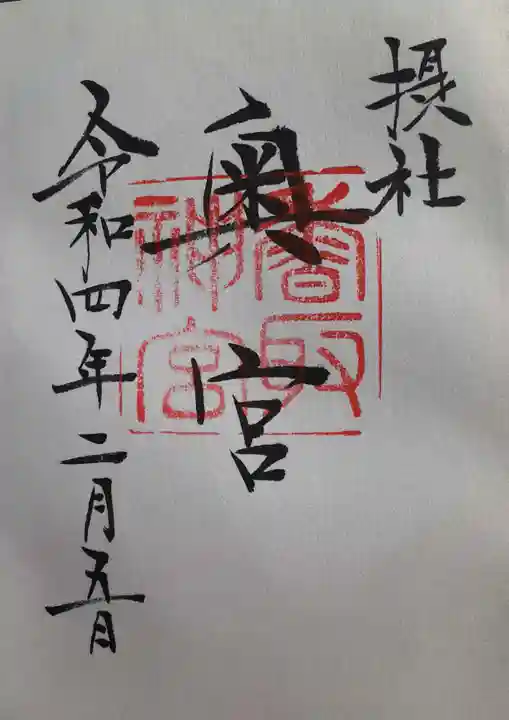 摂社
奥宮
香取神宮
令和四年二月五日